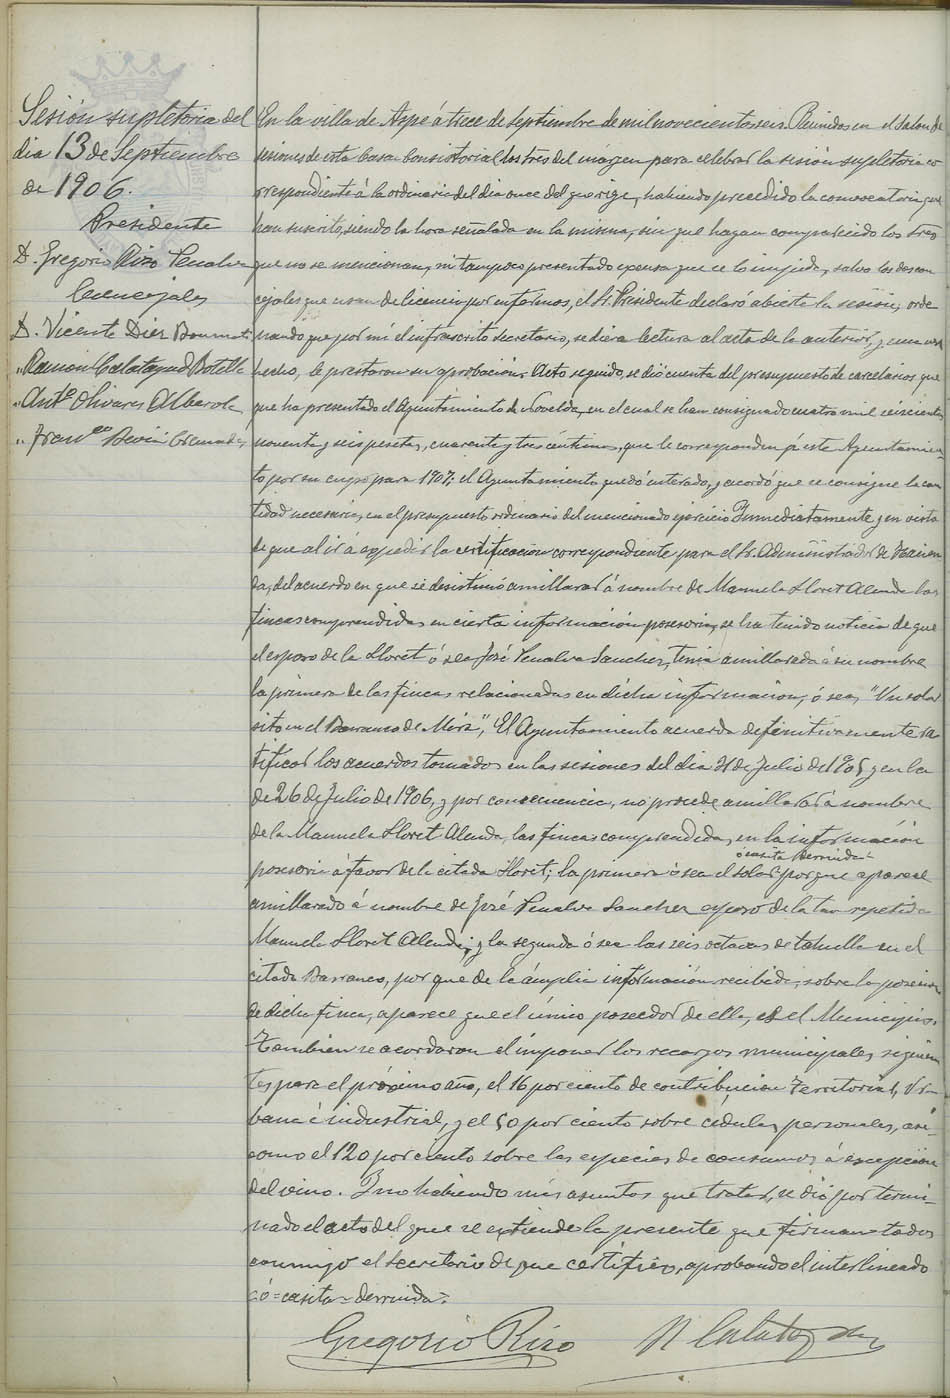 Sesión supletoria del
dia 13 de Septiembre
de 1906.
Presidente
D. Gregorio Rizo Penalva
Concejales
D. Vicente Diez Bonmati
" Ramón Calatayud Botella
" Antº Olivares Alberola
" Franco Cremades
En la villa de Aspe á trece de Septiembre de mil novecientos seis. Reunidos en el Salon de
sesiones de esta Casa Consistorial los Sres del márgen para celebrar la sesión supletoria co
rrespondiente á la ordinaria del dia once del que rige, habiendo precedido la convocatoria que
han suscrito, siendo la hora señalada en la misma, sin que hayan comparecido los Sres
que no se mencionan, ni tampoco presentado excusa que se lo impida, salvo los dos con
cejales que usan de licencia por enfermos, el Sr. Presidente declaró abierta la sesión, orde
nando que por mí el infrascrito Secretario, se diera lectura al acta de la anterior, y una vez
hecho, le prestaron su aprobación. Acto seguido, se dió cuenta del presupuesto de carcelarios que
que ha presentado el Ayuntamiento de Novelda, en el cual se han consignado cuatro mil seiscientas
noventa y seis pesetas, cuarenta y tres céntimos, que le corresponden á este Ayuntamien-
to por su cupo para 1907; el Ayuntamiento quedó enterado, y acordó que se consigne la can
tidad necesaria, en el presupuesto ordinario del mencionado ejercicio. Inmediatamente y en vista
de que al ir á expedir la certificación correspondiente para el Sr. Administrador de Hacien
da, del acuerdo en que se desestimó amillarar á nombre de Manuela Lloret Alenda las
fincas comprendidas en cierta información posesoria, se ha tenido noticia de que
el esposo de la Lloret ó sea José Penalva Sanchez, tenia amillarada á su nombre
la primera de las fincas relacionadas en dicha informacion, ó sea, "Un solar
sito en el Barranco de Mira", El Ayuntamiento acuerda definitivamente ra
tificar los acuerdos tomados en las sesiones del dia 21 de Julio de 1905 y en la
de 26 de Julio de 1906, y por consecuencia, no procede amillarar á nombre
de la Manuela Lloret Alenda, las fincas comprendidas en la información
ó casita derruida
posesoria á favor de la citada Lloret; la primera ó sea el solar porque aparece
amillarado á nombre de José Penalva Sanchez esposo de la tan repetida
Manuela Lloret Alenda; y la segunda ó sea las seis octavas de tahulla en el
citado Barranco, por que de la ámplia información recibida, sobre la posesion
de dicha finca, aparece que el único poseedor de ella, es el Municipio.
Tambien se acordaron el imponer los recargos municipales siguien
tes para el próximo año, el 16 por ciento de contribucion Territorial, Ur-
bana é industrial, y el 50 por ciento sobre cédulas personales, así
como el 120 por ciento sobre las especies de consumos á excepción
del vino. Y no habiendo más asuntos que tratar, se dió por termi-
nado el acto del que se extiende la presente que firman todos
conmigo el Secretario de que certifico, aprobando el interlineado
=ó=casita=derruida=
Gregorio Rizo
R Calatayud